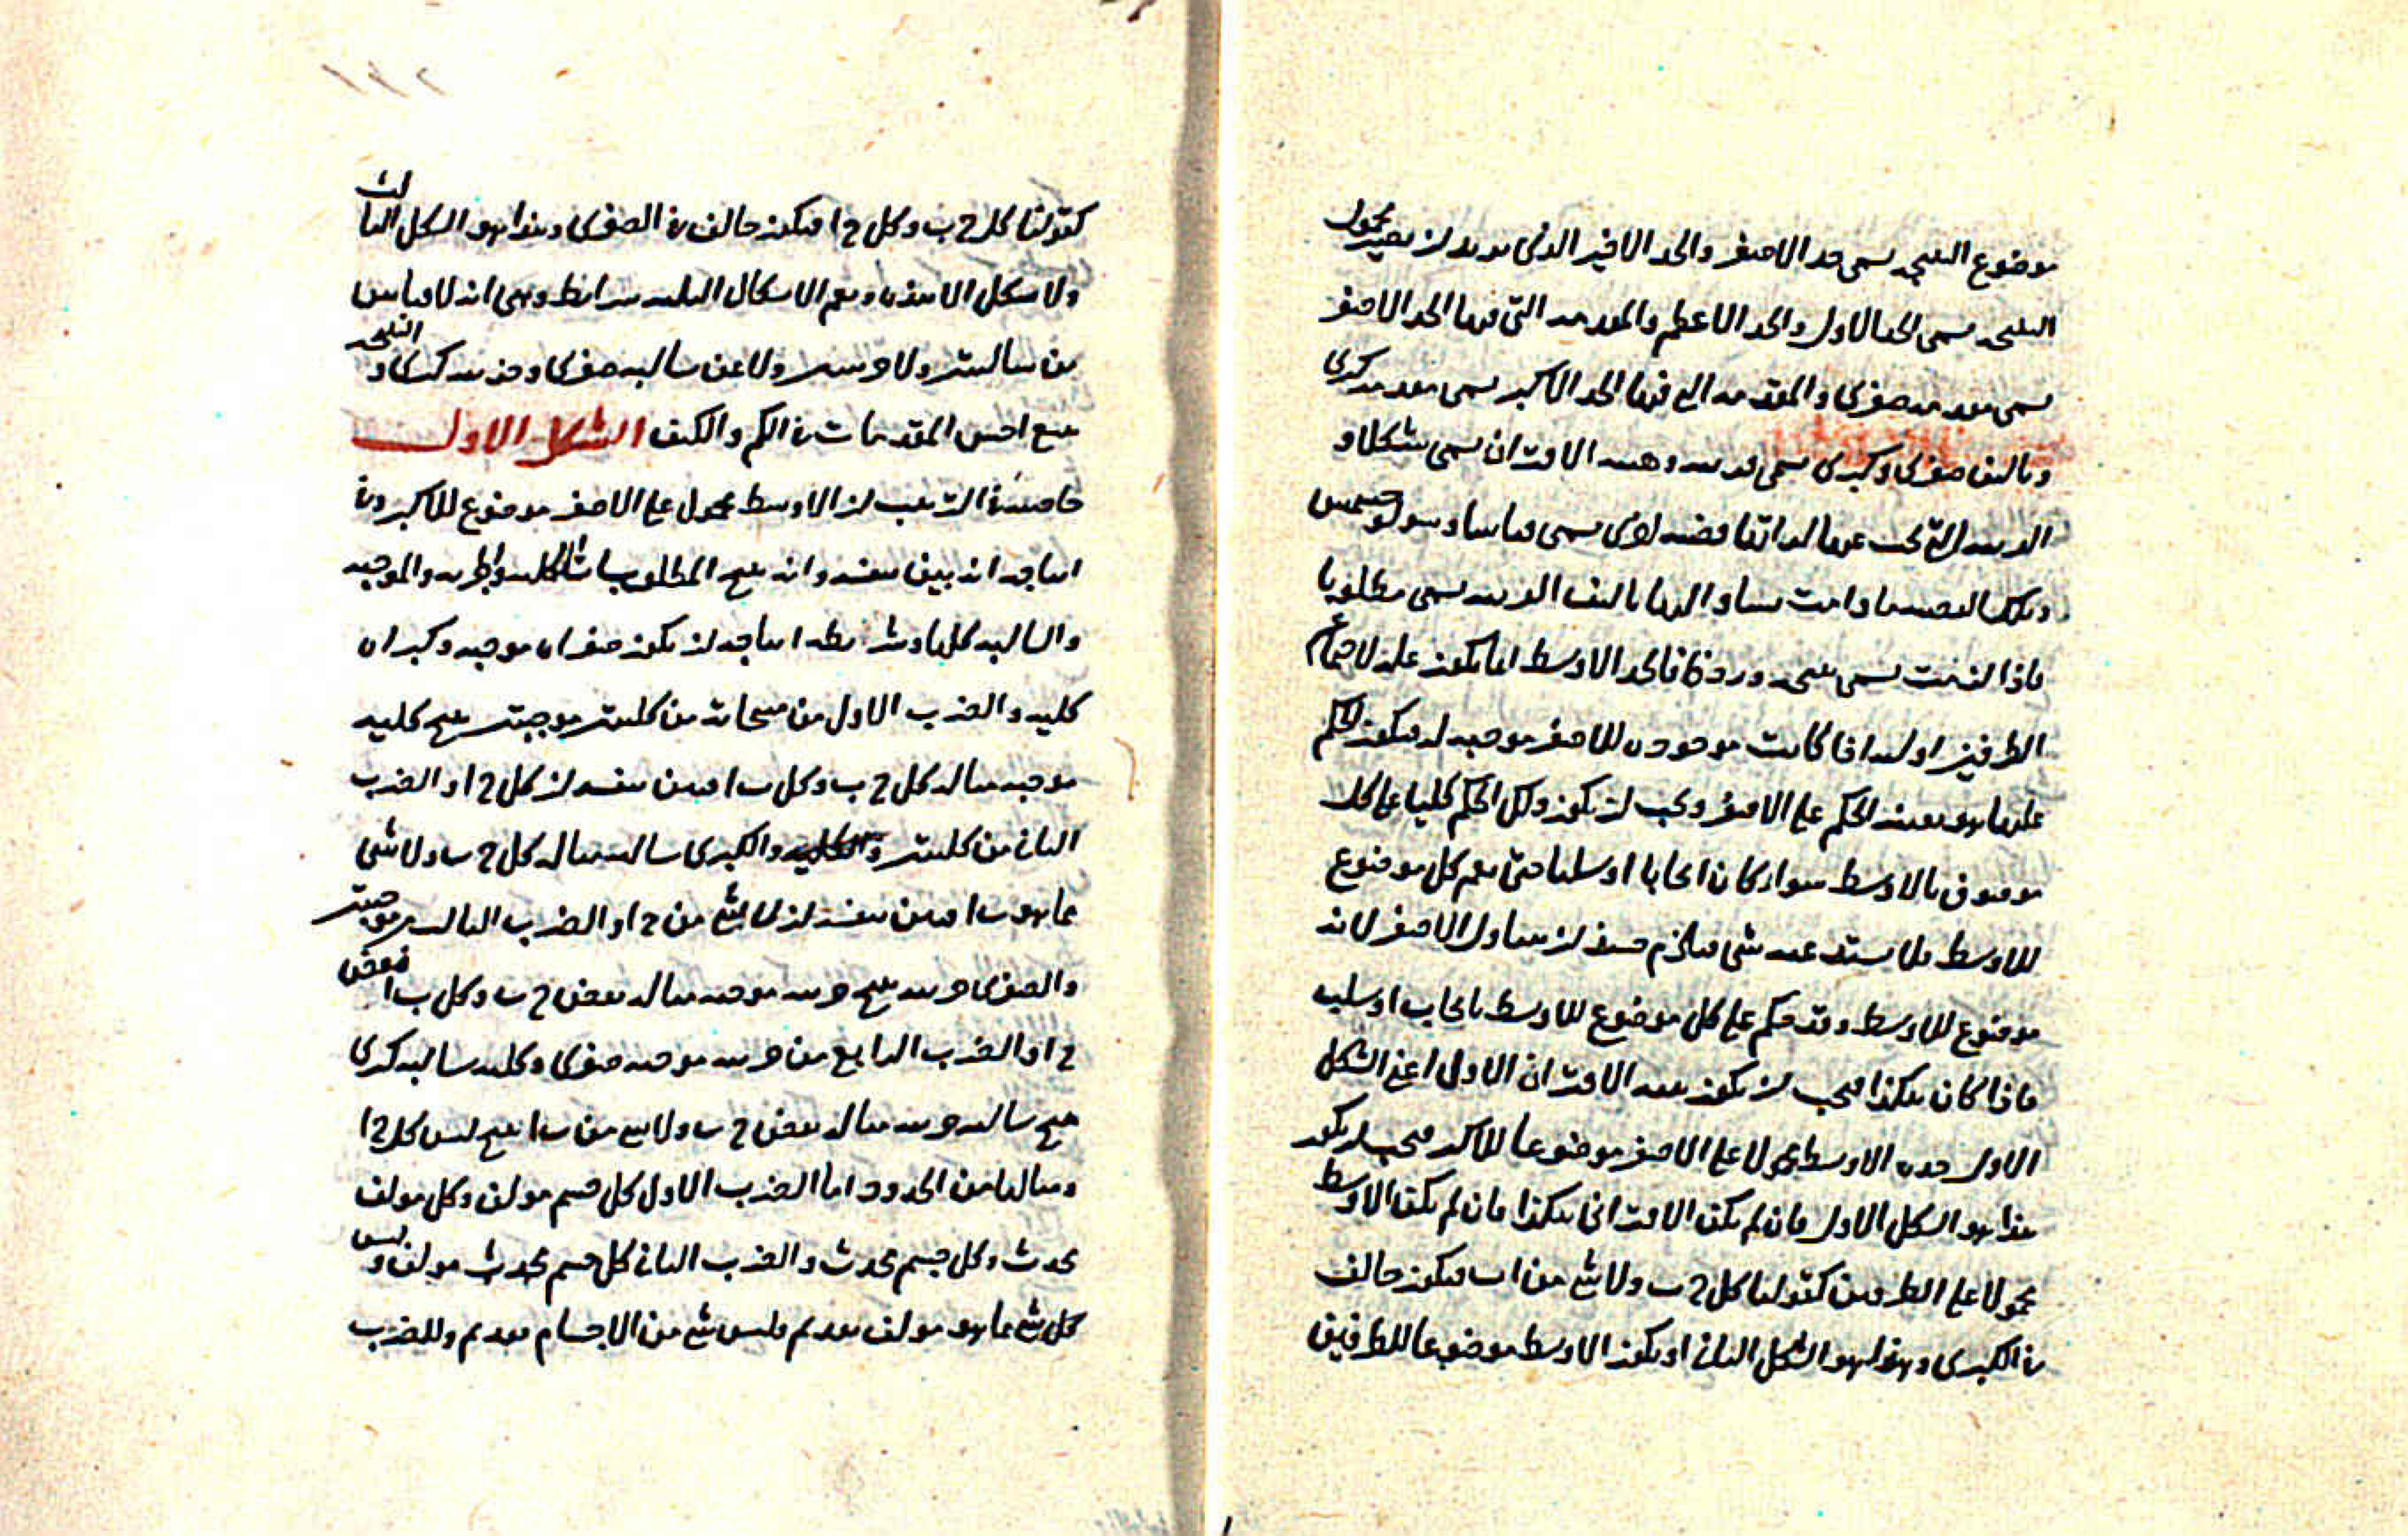 موضوع النتيجة يسمى حد الاصغر والحد الاخير الذى يريد ان يصير محمول
النتيجة يسمى الحد الاول والحد الاعظم والمقدمة التى فيها الحد الاصغر
يسمى مقدمة صغرى والمقدمة التى فيها الحد الاكبر يسمى مقدمة كبرى
وتاليف صغرى وكبرى يسمى قرينة وهيئة الاقتران يسمى شكلا و
القرينة التى تجب عنها لذاتها قضية اخرى يسمى قياسا وسولوجسموس
وتلك القضية ما دامت يساق اليها تاليف القرينة يسمى مطلوبا
فاذا لزمت يسمى نتيجة وردفا فالحد الاوسط انما يكون علة لاجتماع
الطرفين اولية اذا كانت موجودة للاصغر موجبة له فيكون الحكم
عليها هو بعينه الحكم على الاصغر ويجب ان يكون ذلك الحكم كليا على كل
موصوف بالاوسط سواء كان ايجابا او سلبا حتى يعم كل موضوع
للاوسط فلا يستد عنه شى فيلزم حينئذ ان يتناول الاصغر لانه
موضوع للاوسط وقد حكم على كل موضوع للاوسط بايجاب او سلب
فاذا كان هكذا فيجب ان يكون هيئة الاقتران الاول اعنى الشكل
الاول حده الاوسط محمولا على الاصغر موضوعا للاكبر فيجب ان يكون
هذا هو الشكل الاول فان لم يكن الاقترانى هكذا فان لم يكن الاوسط
محمولا على الطرفين كقولنا كل ج ب ولا شئ من ا ب فيكون خالف
فى الكبرى وهذا هو الشكل الثانى او يكون الاوسط موضوعا للطرفين
كقولنا كل ج ب وكل ج ا فيكون خالف فى الصغرى وهذا هو الشكل الثالث
ولا شكل الا هذه ويعم الاشكال الثلثة شرائط وهى انه لا قياس
من سالبتين ولا جزئيتين ولا عن سالبة صغرى وجزئية كبرى والنتيجة
تتبع اخس المقدمات فى الكم والكيف الشكل الاول
خاصيته فى الترتيب ان الاوسط محمول على الاصغر موضوع للاكبر وفى
انتاجه انه بين بنفسه وانه ينتج المطلوبات الكلية والجزئية والموجبة
والسالبة كلها وشريطة انتاجه ان يكون صغراه موجبة وكبراه
كلية والضرب الاول من منتجاته من كليتين موجبتين ينتج كلية
موجبة مثاله كل ج ب وكل ب ا فبين بنفسه ان كل ج ا والضرب
الثانى من كليتين والكبرى سالبة مثاله كل ج ب ولا شى
مما هو ب ا فبين بنفسه ان لا شئ من ج ا والضرب الثالث من موجبتين
والصغرى جزئية ينتج جزئية موجبة مثاله بعض ج ب وكل ب ا فبعض
ج ا والضرب الرابع من جزئية موجبة صغرى وكلية سالبة كبرى
ينتج سالبة جزئية مثاله بعض ج ب ولا شئ من ب ا ينتج ليس كل ج ا
ومثالها من الحدود اما الضرب الاول كل جسم مولف وكل مولف
محدث وكل جسم محدث والضرب الثانى كل جسم محدث مولف وليس
كل شئ مما هو مولف بقديم فليس شئ من الاجسام بقديم وللضرب